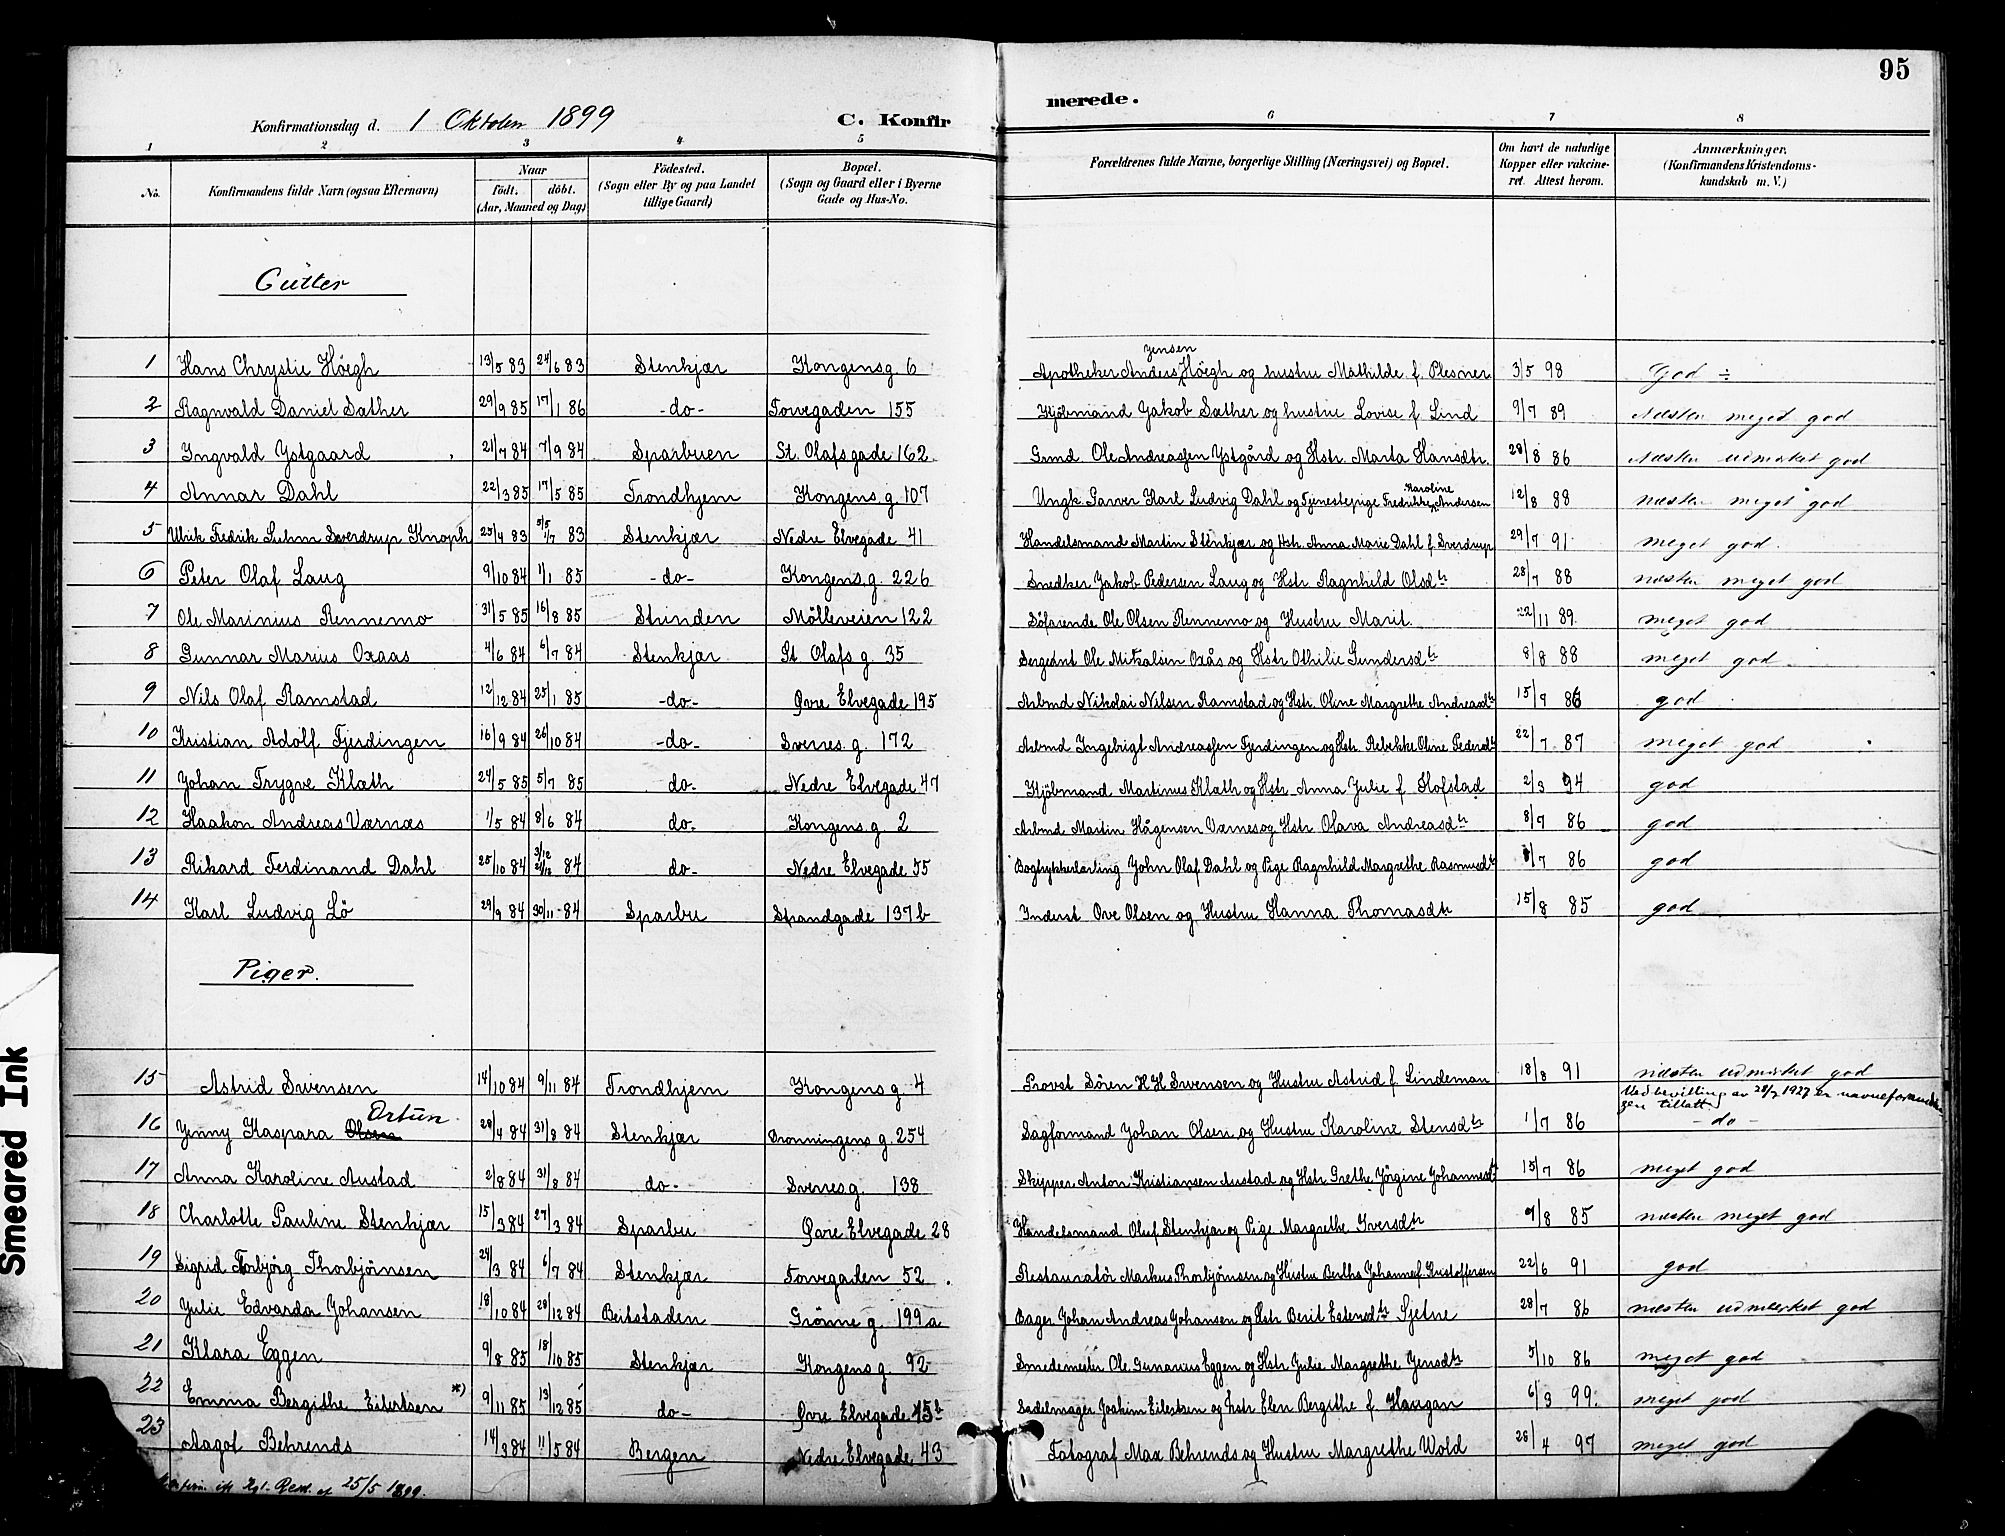 95
Konfirmationsdag d. 1 Oktober 1899 C. Konfirmerede.
1 2 3 4 5 6 7 8
No. Konfirmandens fulde Navn (ogsaa Efternavn) Naar født. døbt. (Aar, Maaned og Dag) Fødested. (Sogn eller By og paa Landet tillige Gaard) Bopæl. (Sogn og Gaard eller i Byerne Gade og Hus-No. Forældrenes fulde Navne, borgerlige Stilling (Næringsvei) og Bopæl. Om havt de naturlige Kopper eller vakcineret. Attest herom. Anmærkninger. (Konfirmandens Kristendomskundskab m. V.)
Gutter
1 Hans Chrystie Höegh 13/5 83 24/6 83 Stenkjær Kongensg. 6 Apotheker Anders Jensen Höegh og hustru Mathilde f. Plesner 3/5 98 God ÷
2 Ragnvald Daniel Sæther 29/9 85 17/1 86 -do- Torvegaden 155 Kjöbmand Jakob Sæther og hustru Lovise f. Lind 9/7 89 Næsten meget god
3 Ingvald Ystgaard 21/7 84 7/9 84 Sparbuen St. Olafsgade 162 Grmd. Ole Andreassen Ystgård og Hstr. Marta Hansdtr. 28/8 86 Næsten udmærket god
4 Annar Dahl 22/3 85 17/5 85 Trondhjem Kongens g. 107 Ungk. Garver Karl Ludvig Dahl og Tjenestepige Fredrikke Karoline Andersen 12/8 88 næsten meget god
5 Ulrik Fredrik Suhm Sverdrup Knoph 25/4 83 5/5 1/7 83 Stenkjær Nedre Elvegade 41 Handelsmand Martin Stenkjær og Hstr. Anna Marie Dahl f. Sverdrup 29/7 91 meget god.
6 Peter Olaf Laug 9/10 84 1/1 85 -do- Kongens g. 226 Snedker Jakob Pedersen Laug og Hstr Ragnhild Olsdtr 28/7 88 næsten meget god
7 Ole Marinius Rennemo 31/5 85 16/8 85 Strinden Mölleveien 122 Söfarende Ole Olsen Rennemo og Hustru Marit. 22/11 89 meget god
8 Gunnar Marius Oxaas 4/6 84 6/7 84 Stenkjær St Olafs g. 35 Sergeant Ole Mikalsen Oxås og Hstr Othilie Gundersdtr 8/8 88 meget god
9 Nils Olaf Ramstad 12/12 84 25/1 85 -do- Øvre Elvegade 195 Arbmd Nikolai Nilsen Ramstad og Hstr. Oline Margrethe Andreasdtr 15/9 86 god
10 Kristian Adolf Fjerdingen 16/9 84 26/10 84 -do- Sverres g. 172 Arbmd Ingebrigt Andreassen Fjerdingen og Hstr. Rebekke Oline Pedersdtr 22/7 87 meget god
11 Johan Trygve Klæth 24/5 85 5/7 85 do- Nedre Elvegade 47 Kjöbmand Martinus Klæth og Hstr Anna Julie f Hofstad 2/3 94 god
12 Haakon Andreas Værnæs 1/5 84 8/6 84 do- Kongens g. 2 Arbmd Martin Hågensen Værnes og Hstr Olava Andreasdtr 8/7 86 god
13 Rikard Ferdinand Dahl 25/10 84 84 do- Nedre Elvegade 55 Bogtrykkerlærling John Olaf Dahl og Pige Ragnhild Margrethe Rasmusdtr /7 86 god
14 Karl Ludvig Lö 29/9 84 30/11-84 Sparbu Strandgade 137b Inderst Ove Olsen og Hustru Hanna Thomasdtr 15/8 85 god
Piger.
15 Astrid Svensen 14/10 84 9/11 84 Trondhjem Kongens g. 4 Provst Sören H H Svensen og Hustru Astrid f. Lindeman 18/8 91 næsten udmærket god
16 Jenny Kaspara Olsen Ortun 28/4 84 31/8 84 Stenkjær Dronningens g. 254 Sagformand Johan Olsen og Hustru Karoline Stensdtr 1/7 86 Ved bevilling av 28/7 1927 er navneforandringen tillatt -do-
17 Anna Karoline Austad 2/8 84 31/8 84 do- Sverres g. 138 Skipper Anton Kristiansen Austad og Hstr Grethe Jörgine Johannesdtr 15/7 86 meget god
18 Charlotte Pauline Stenkjær 15/3 84 27/3 84 Sparbu Øvre Elvegade 28 Handelsmand Oluf Stenkjær og Pige Margrethe Iversdtr 9/8 85 næsten meget god
19 Sigrid Torbjørg Thorbjørnsen 24/3 84 6/7 84 Stenkjær Torvegaden 52 Restauratör Markus Thorbjörnsen og Hustru Bertha Johanne f. Kristoffersen 22/6 91 god
20 Julie Edvarda Johansen 18/10 84 28/12 84 Beitstaden Grönne g. 199a Bager Johan Andreas Johansen og Hstr Berit Estensdtr Sjetne 28/7 86 næsten udmærket god
21 Klara Eggen 9/8 85 18/10 85 Stenkjær Kongens g. 92 Smedemester Ole Gunarius Eggen og Hstr Julie Margrethe Jensdtr 5/10 86 meget god
22 Emma Bergithe Eilertsen *) 9/11 85 13/12 85 do- Øvre Elvegade 15b Sadelmager Joakim Eilertsen og Hstr Elen Bergithe f. Haugan 6/3 99. meget god
23 Aagot Behrends 14/3 84 11/5 84 Bergen Nedre Elvegade 43 Fotograf Max Behrends og Hustru Margrethe Wold 28/4 97 meget god
Kgl. Resl. af 25/5 1899.
Smeared Ink